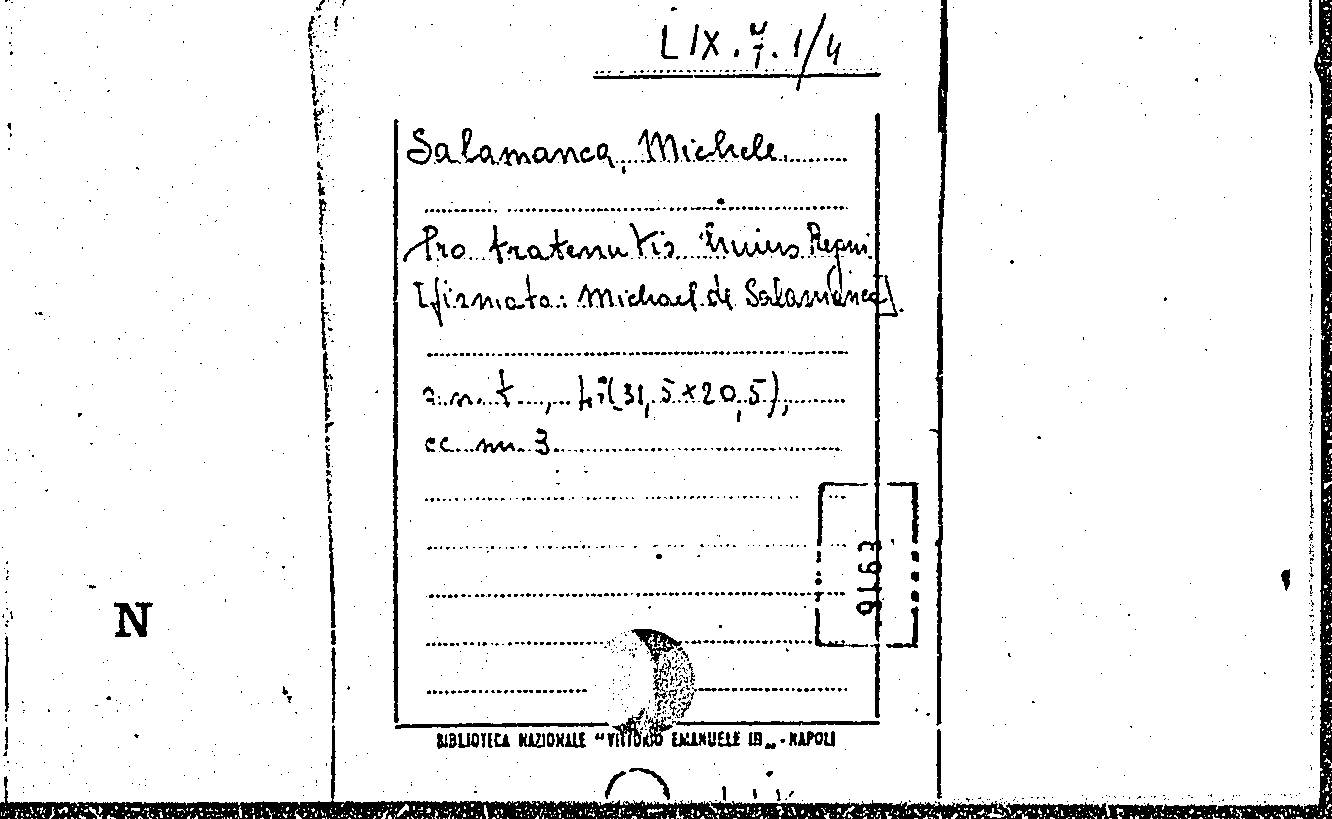 LIX. 7. 1/4
Salamanca, Michele.
Pro tratenutis huius Regni
[firmata: Michael de Salamanca].
a. n. t., (31,5x20,5),
cc. nn. 3.
9163
N
BIBLIOTECA NAZIONALE "VITTORIO EMANUELE III" - NAPOLI